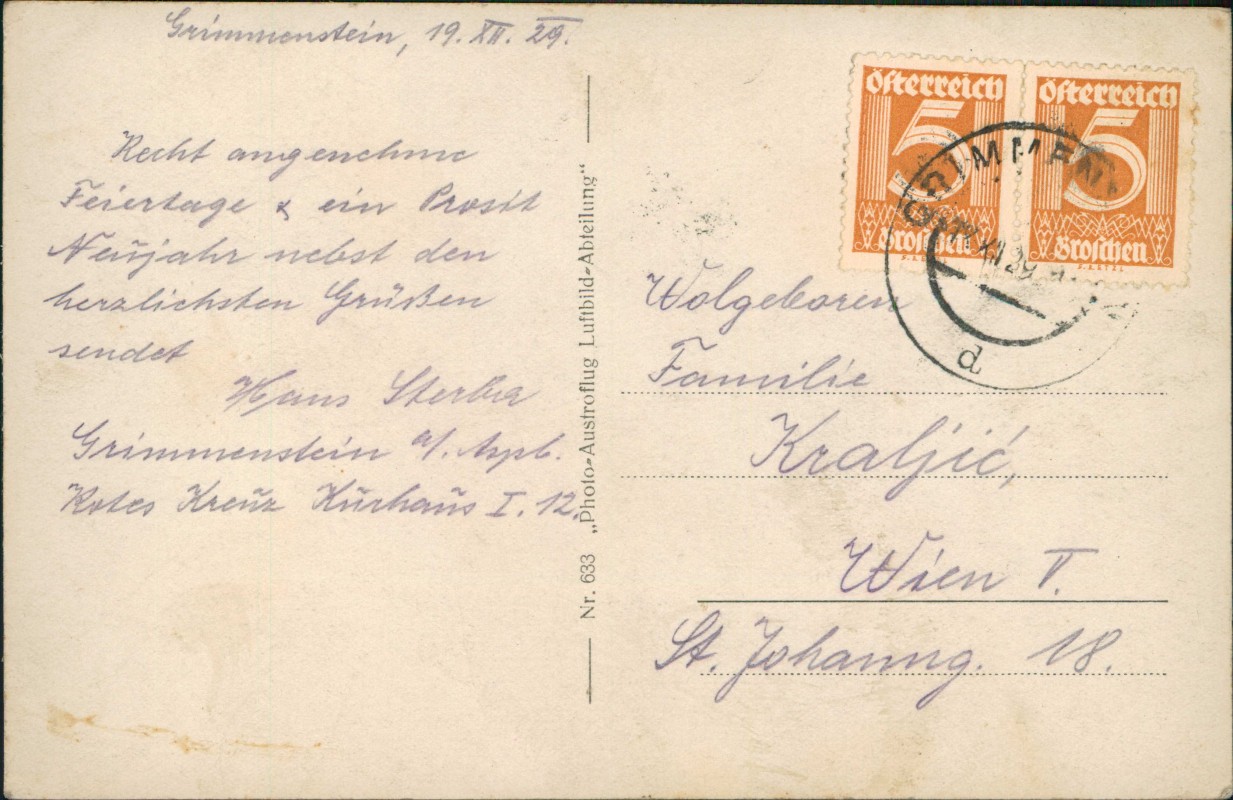 Grimmenstein, 19. XII. 29.
Recht angenehme
Feiertage & ein Prosit
Neujahr nebst den
herzlichsten Grüßen
sendet
Hans Sterba
Grimmenstein a/. Aspb.
Rotes Kreuz Kurhaus I. 12.
Nr. 633 „Photo-Austroflug Luftbild-Abteilung"
Österreich
5
Groschen
Österreich
5
Groschen
XII 29
d
Wolgeboren
Familie
Kraljić,
Wien V.
St. Johanng. 18.